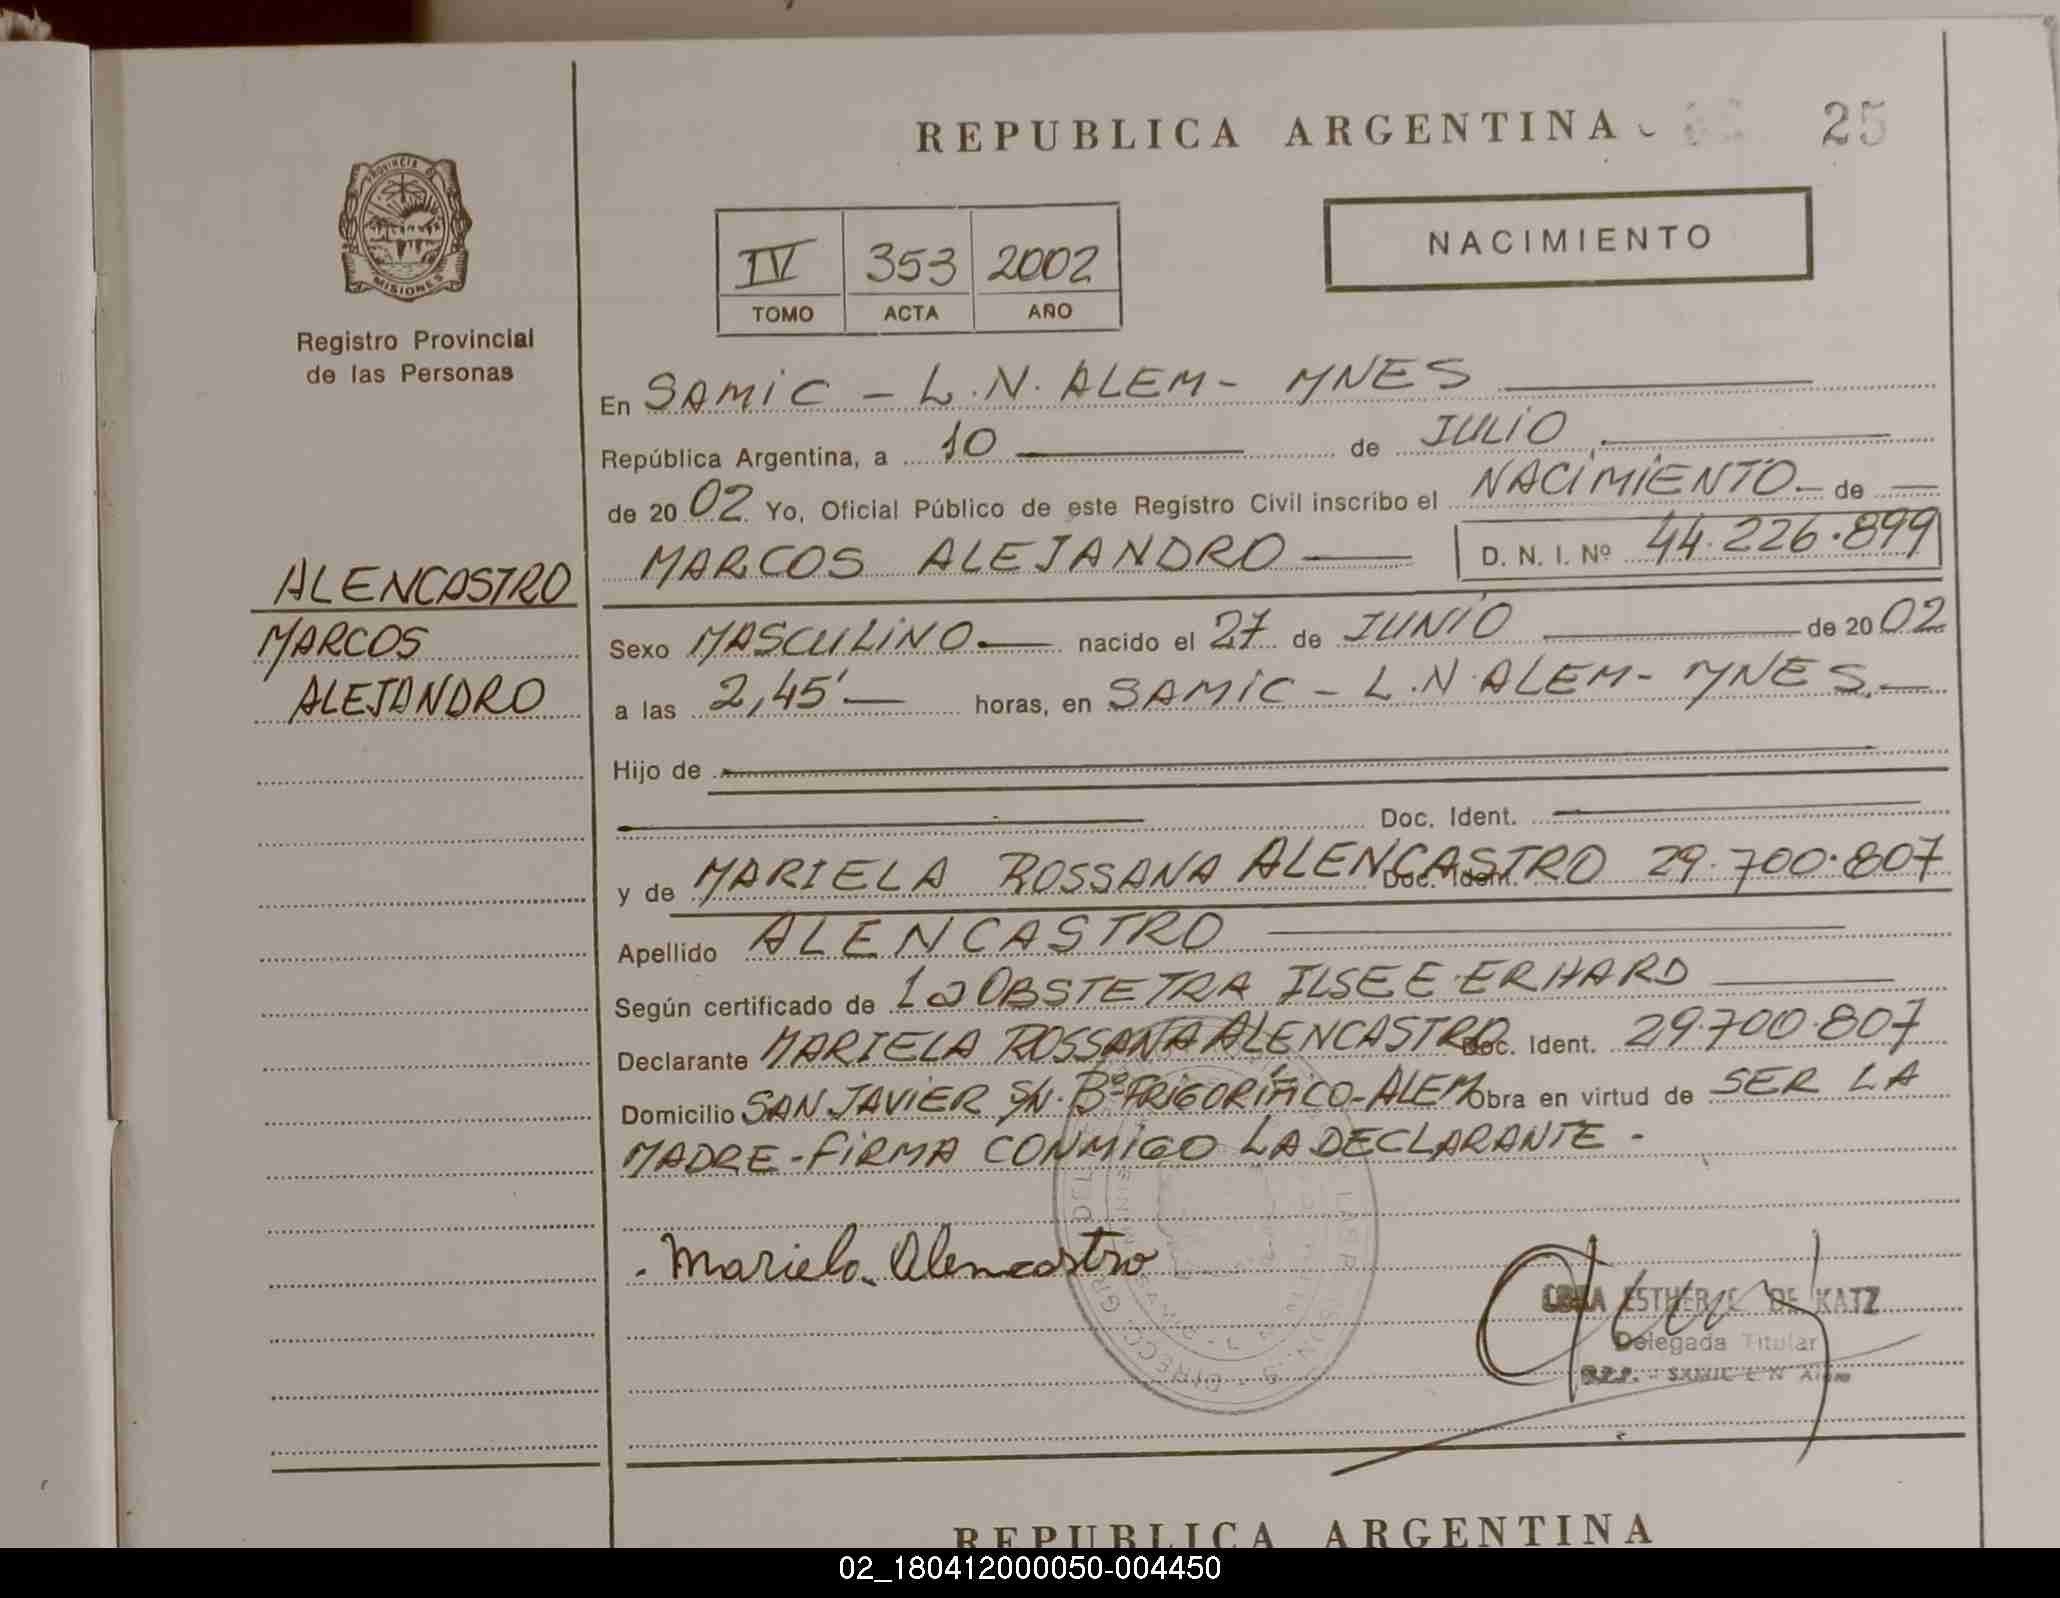 REPUBLICA ARGENTINA 25
PROVINCIA
MISIONES
Registro Provincial
de las Personas
NACIMIENTO
IV 353 2002
TOMO ACTA AÑO
En SAMIC - L.N. ALEM - MNES
República Argentina, a 10 de JULIO
de 2002 Yo, Oficial Público de este Registro Civil inscribo el NACIMIENTO de
MARCOS ALEJANDRO D. N. I. Nº 44.226.899
ALENCASTRO
MARCOS
ALEJANDRO
Sexo MASCULINO nacido el 27 de JUNIO de 2002
a las 2,45' horas, en SAMIC - L.N. ALEM - MNES.
Hijo de
Doc. Ident.
y de MARIELA ROSSANA ALENCASTRO Doc. Ident. 29.700.807
Apellido ALENCASTRO
Según certificado de La OBSTETRA ILSE E. ERHARD
Declarante MARIELA ROSSANA ALENCASTRO Doc. Ident. 29.700.807
Domicilio SAN JAVIER S/N. Bº FRIGORÍFICO - ALEM Obra en virtud de SER LA
MADRE - FIRMA CONMIGO LA DECLARANTE -
Mariela Alencastro
ESTHER DE KATZ
Delegada Titular
REPUBLICA ARGENTINA
02_180412000050-004450